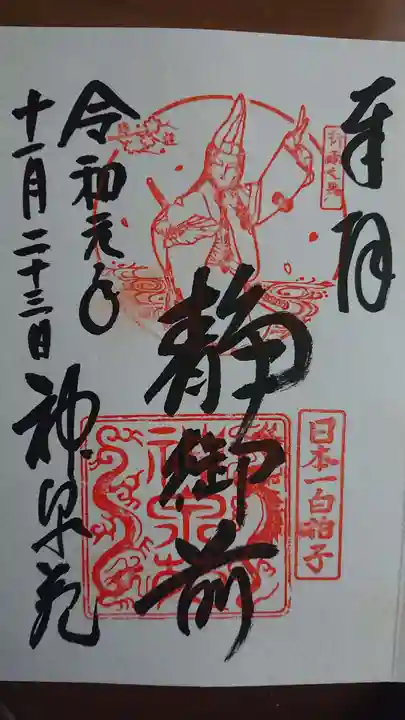 奉拝
静御前
日本一白拍子
令和元年
十一月二十三日
神泉苑
神泉苑